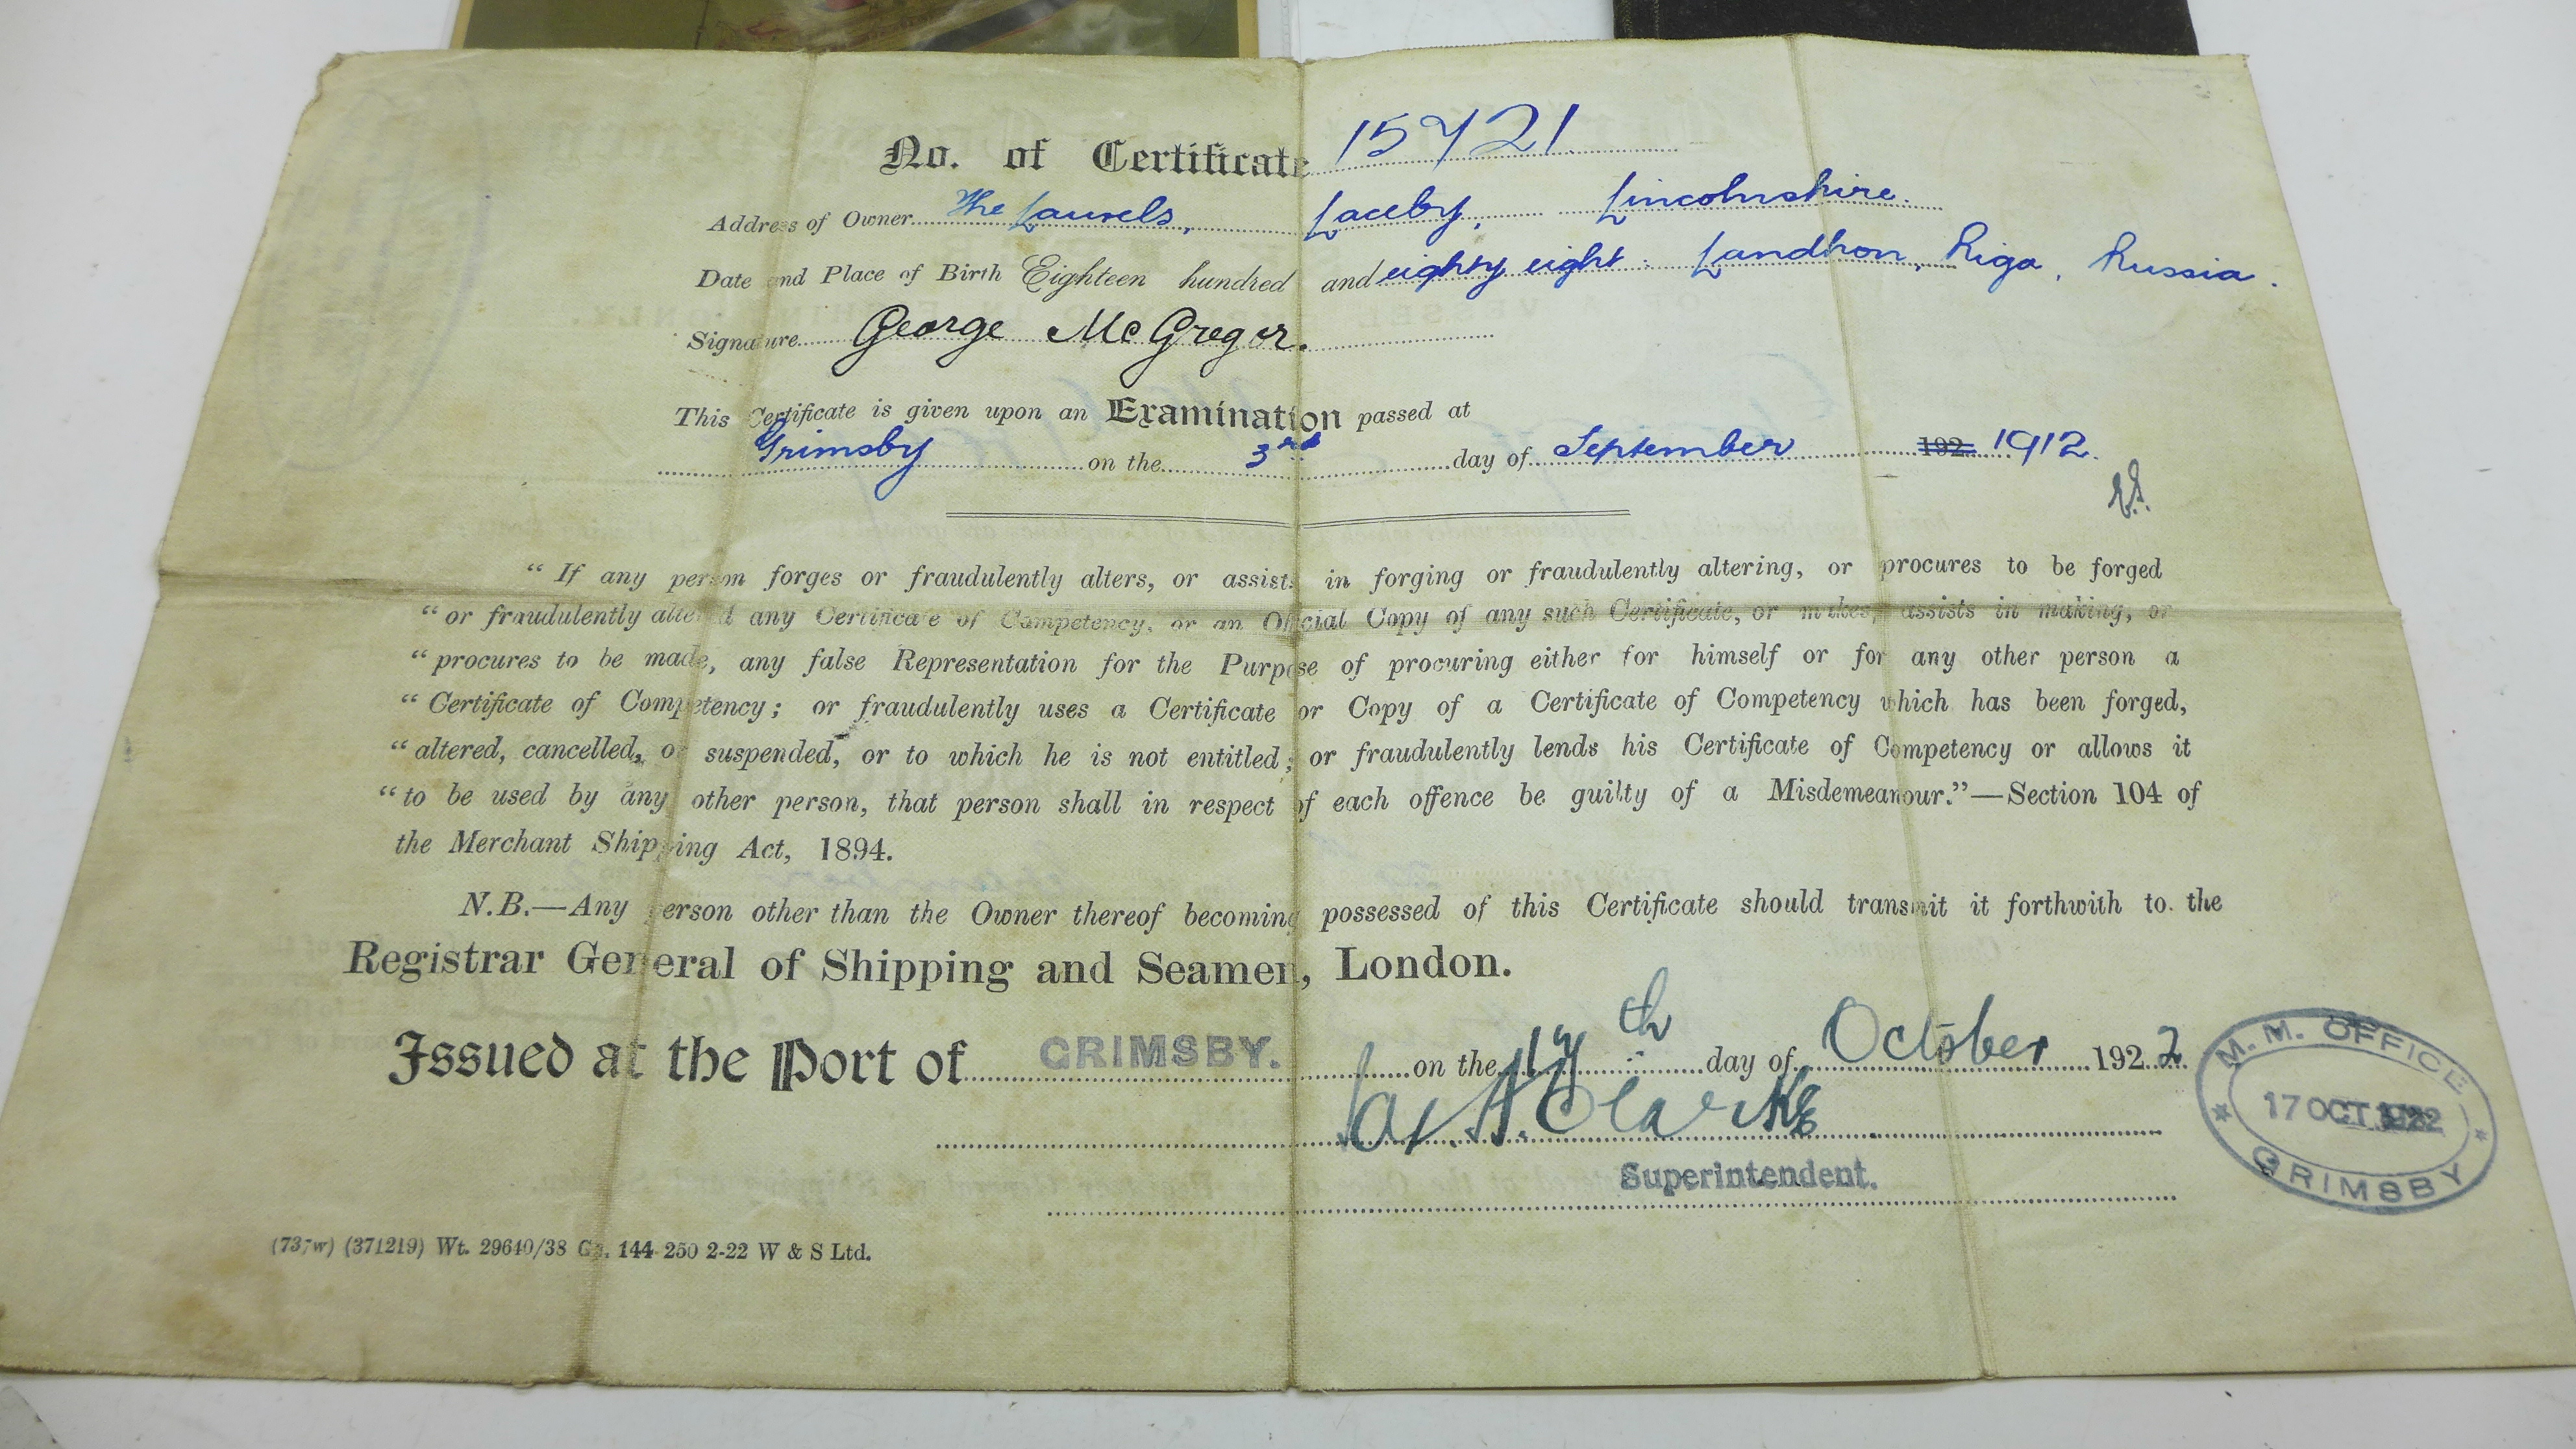 No. of Certificate 15721
Address of Owner The Laurels, Laceby, Lincolnshire.
Date and Place of Birth Eighteen hundred and eighty eight. Landhon, Riga, Russia.
Signature George McGregor.
This Certificate is given upon an Examination passed at
Grimsby on the 3rd day of September 192 1912.
"If any person forges or fraudulently alters, or assists in forging or fraudulently altering, or procures to be forged
"or fraudulently altered any Certificate of Competency, or an Official Copy of any such Certificate, or makes, assists in making, or
"procures to be made, any false Representation for the Purpose of procuring either for himself or for any other person a
"Certificate of Competency; or fraudulently uses a Certificate or Copy of a Certificate of Competency which has been forged,
"altered, cancelled, or suspended, or to which he is not entitled; or fraudulently lends his Certificate of Competency or allows it
"to be used by any other person, that person shall in respect of each offence be guilty of a Misdemeanour."—Section 104 of
the Merchant Shipping Act, 1894.
N.B.—Any person other than the Owner thereof becoming possessed of this Certificate should transmit it forthwith to the
Registrar General of Shipping and Seamen, London.
Issued at the Port of GRIMSBY. on the 17th day of October 1922
Clarke
Superintendent.
M. M. OFFICE
17 OCT 1922
GRIMSBY
(737w) (371219) Wt. 29640/38 144 250 2-22 W & S Ltd.